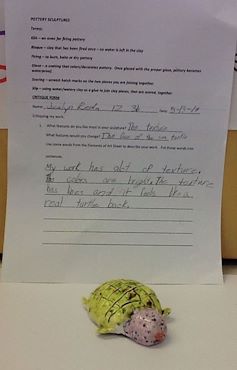 POTTERY SCULPTURES
Terms:
Kiln – an oven for firing pottery
Bisque – clay that has been fired once – so water is left in the clay
Firing – to burn, bake or dry pottery
Glaze – a coating that colors/decorates pottery. Once glazed with the proper glaze, pottery becomes
waterproof.
Scoring – scratch hatch marks on the two pieces you are joining together
Slip – using water/watery clay as a glue to join clay pieces, that are scored, together
CRITIQUE FORM
Name Date
Critiquing my work.
1. What features do you like most in your sculpture? The texture
What features would you change? The face of the turtle
Use some words from the Elements of Art Sheet to describe your work. Put those words into
sentences.
My work has alot of texture.
The colors are bright. The texture
has lines and it feels like a
real turtle back.